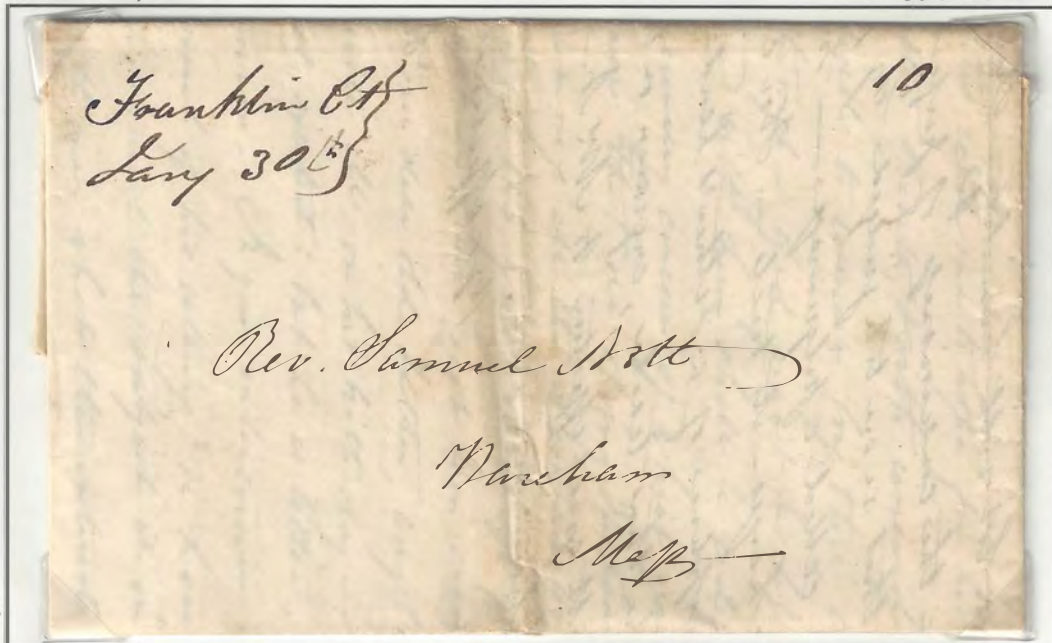 Franklin Ct
10
Jany 30th
Rev. Samuel Nott
Wareham
Mass